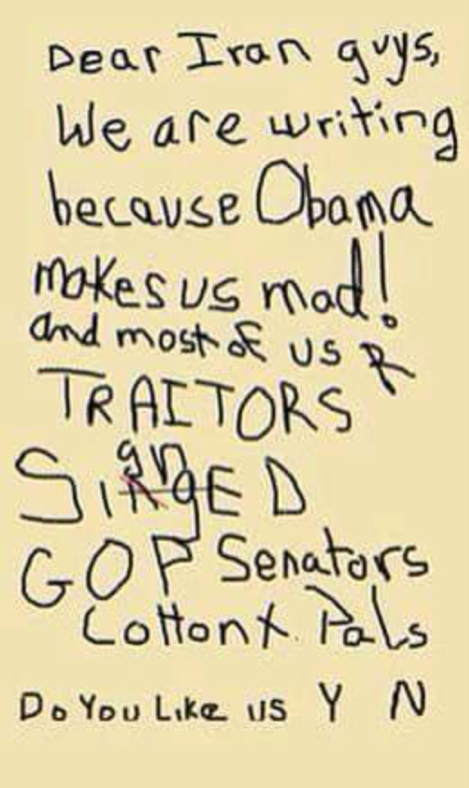 Dear Iran guys,
We are writing
because Obama
makes us mad!
and most of us R
TRAITORS
gn
SingED
GOP Senators
Cotton & Pals
Do You Like us Y N